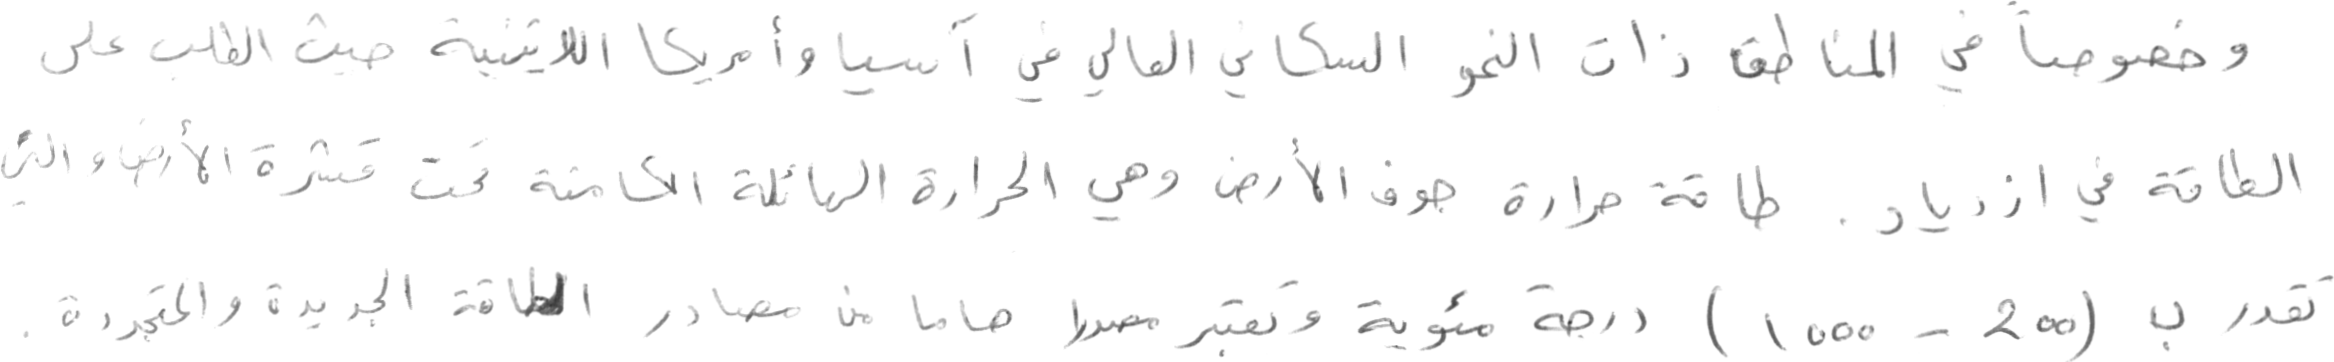 وخصوصاً في المناطق ذات النمو السكاني العالي في آسيا وأمريكا اللاتينية حيث الطلب على
الطاقة في ازدياد. طاقة حرارة جوف الأرض وهي الحرارة الهائلة الكامنة تحت قشرة الأرض والتي
تقدر ب (200 - 1000) درجة مئوية وتعتبر مصدرا هاما من مصادر الطاقة الجديدة والمتجددة.